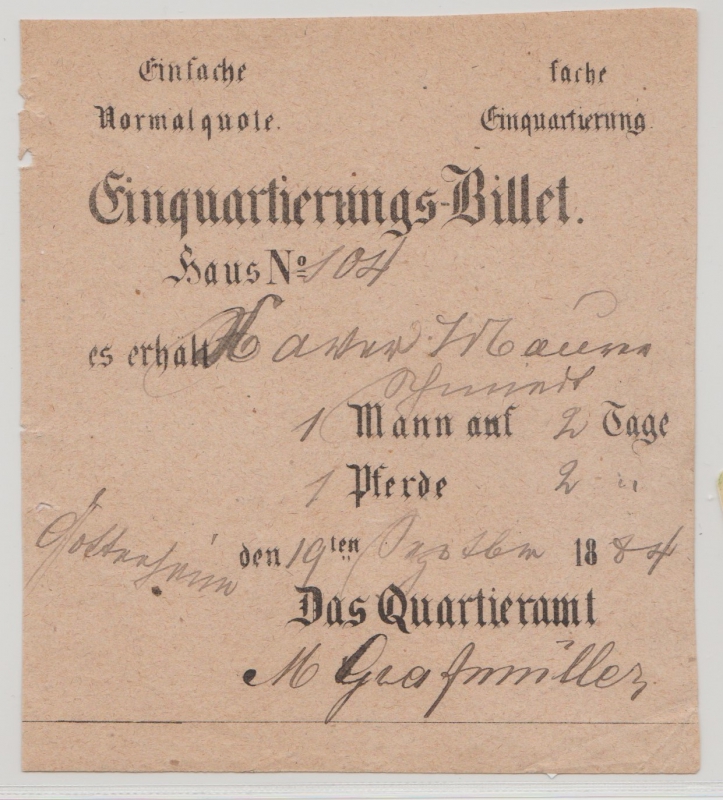 Einfache fache
Normalquote. Einquartierung.
Einquartierungs-Billet.
Haus No 104
es erhält Xaver Maurer
Schmied
1 Mann auf 2 Tage
1 Pferde 2 "
Gottenheim den 19ten Septbr 1884
Das Quartieramt
M Grafmüller